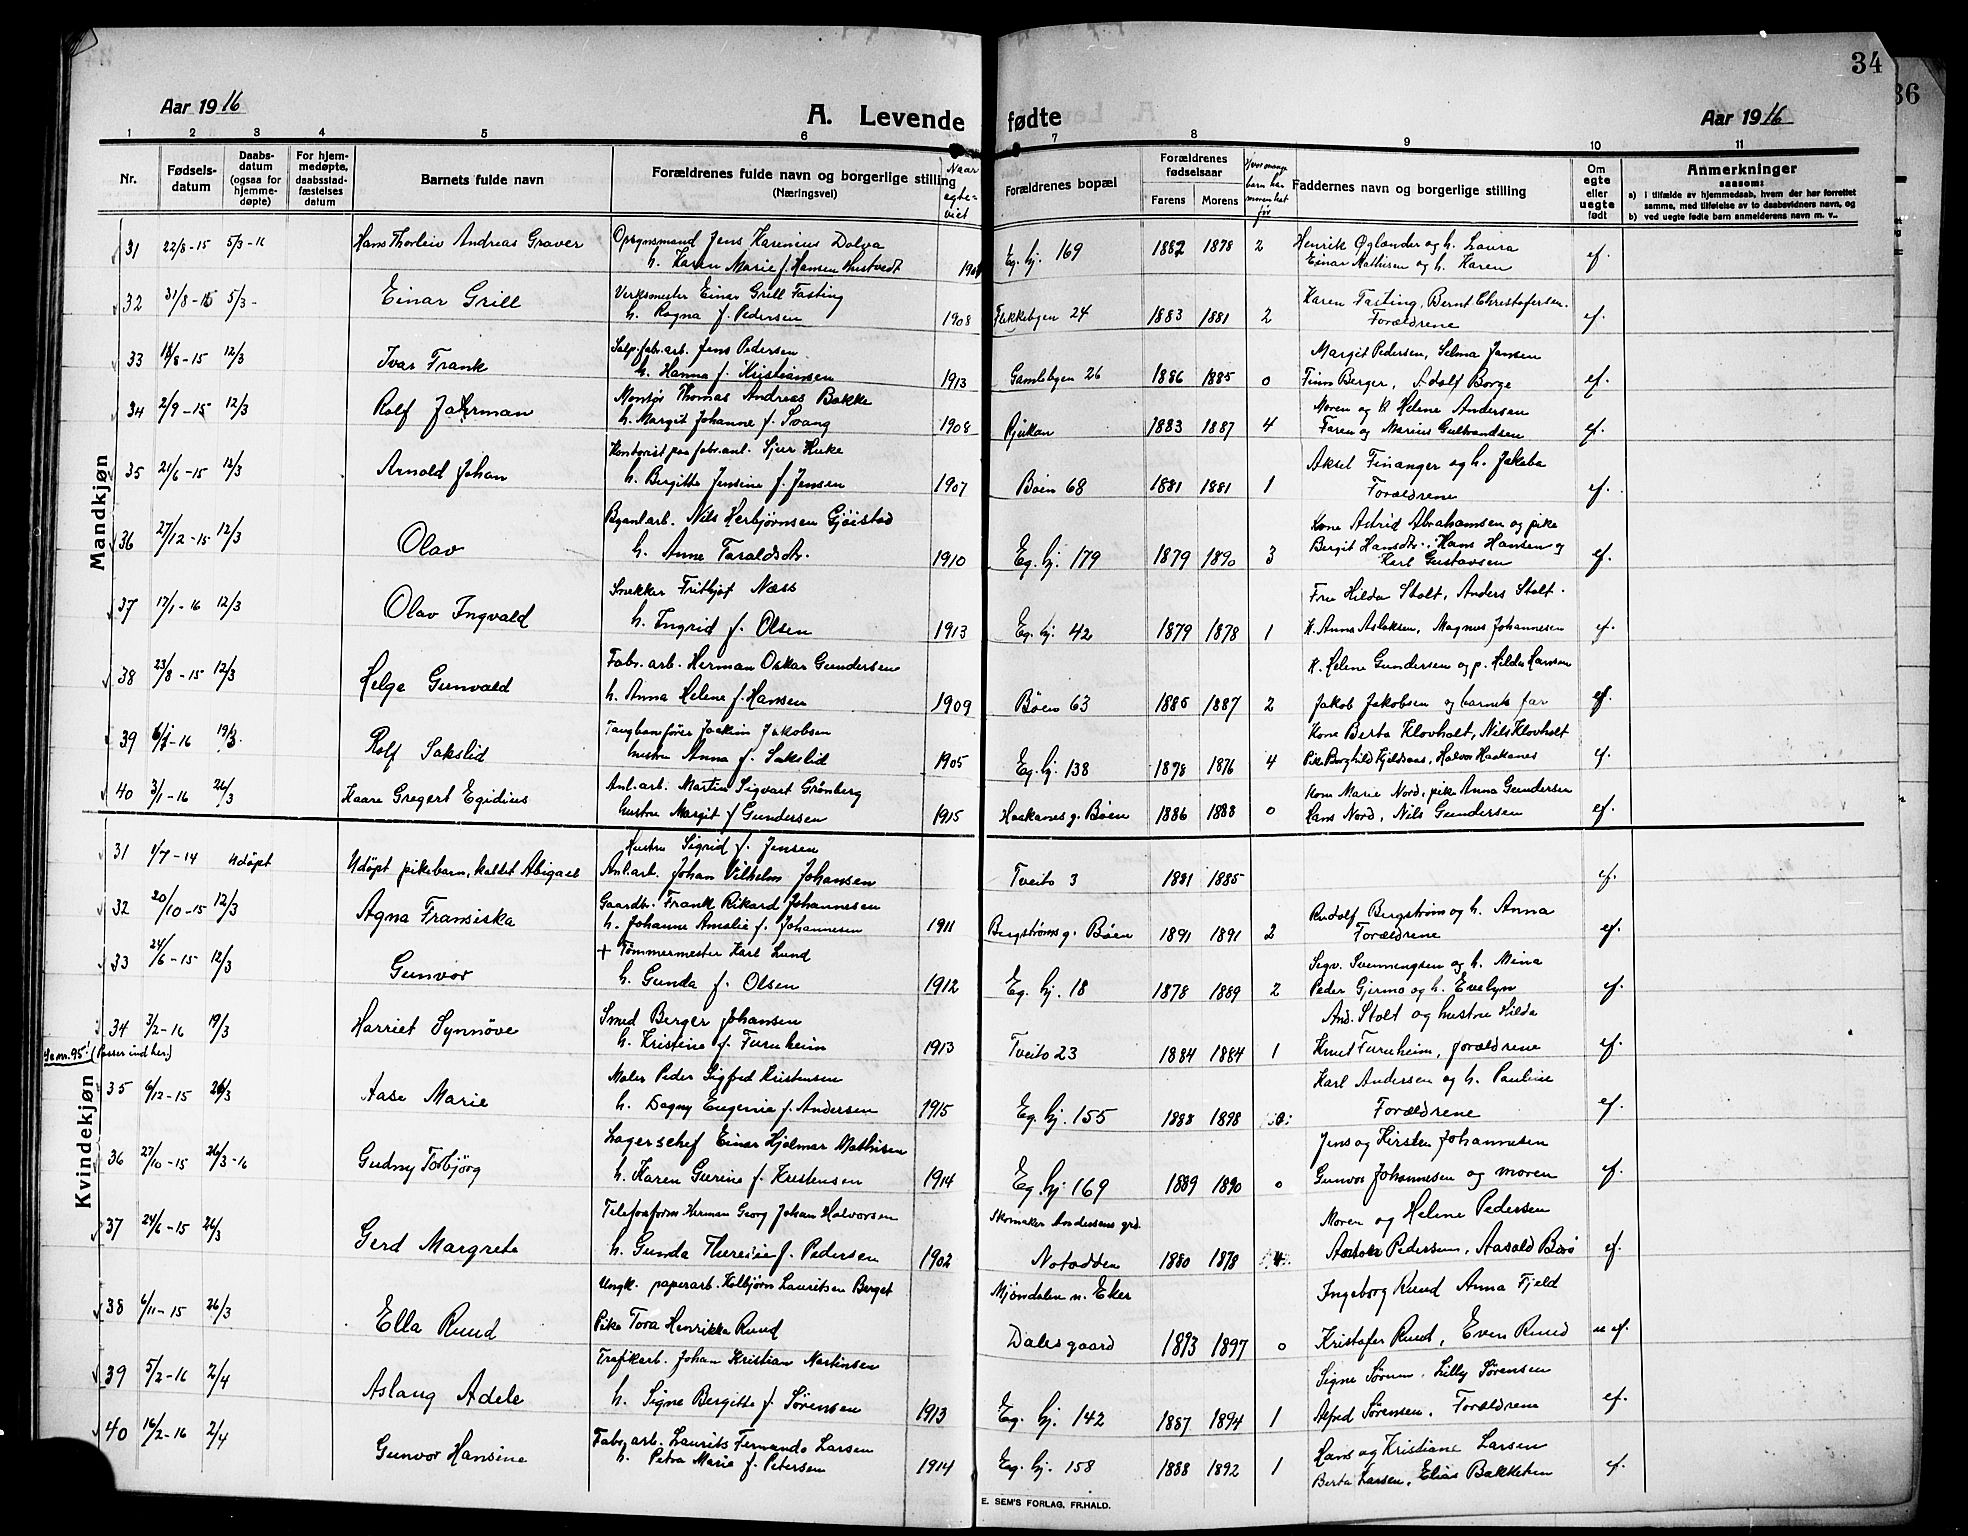 34
36
Aar 1916
A. Levende fødte
Aar 1916
1 2 3 4 5 6 7 8 9 10 11
Nr.
Fødsels-
datum
Daabs-
datum
(ogsaa for
hjemme-
døpte)
For hjem-
medøpte,
daabsstad-
fæstelses
datum
Barnets fulde navn
Forældrenes fulde navn og borgerlige stilling
(Næringsvei)
Naar
egte-
viet
Forældrenes bopæl
Forældrenes
fødselsaar
Farens Morens
Hvormange
barn har
moren hat
før
Faddernes navn og borgerlige stilling
Om
egte
eller
uegte
født
Anmerkninger
saasom:
a) i tilfælde av hjemmedaab, hvem der har forrettet
samme, med tilføielse av to daabsvidners navn, og
b) ved uegte fødte barn anmelderens navn m. v..
Mandkjøn
31 22/8-15 5/3-16 Hans Thorleiv Andreas Graver Opsynsmand Jens Karenius Dolva
h. Karen Marie f. Hansen Hustvedt Eg. hj. 169 1882 1878 2 Henrik Øglænder og h. Laura
Einar Mathisen og h. Karen ef.
32 31/8-15 5/3- Einar Grill Verksmester Einar Grill Fasting
h. Ragna f. Pedersen 1908 Flekkebyen 24 1883 1881 2 Karen Fasting, Bernt Christofersen.
Forældrene ef.
33 18/8-15 12/3 Ivar Frank Salp.fabr.arb. Jens Pedersen
h. Hanna f. Kristiansen 1913 Gamlebyen 26 1886 1885 0 Margit Pedersen, Selma Jensen
Finn Berger, Adolf Borge ef.
34 2/9-15 12/3 Rolf Montør Thomas Andreas Bakke
h. Margit Johanne f. Svang 1908 Rjukan 1883 1887 4 Moren og Helene Andersen
Faren og Marius Gulbrandsen ef.
35 21/6-15 12/3 Arnold Johan Kontorist paa fabr.anl. Sjur Huke
h. Bergitte Jensine f. Jensen 1907 Bøen 68 1881 1881 1 Aksel Finanger og h. Jakoba
Forældrene ef.
36 27/12-15 12/3 Olav Bganl.arb. Nils Herbjørnsen Gjøistad
h. Anne Taraldsdtr. 1910 Eg. hj. 179 1879 1890 3 Kone Astrid Abrahamsen og pike
Bergit Hansdtr. Hans Hansen og
Karl Gustavsen ef.
37 17/1-16 12/3 Olav Ingvald Snekker Fritjof Næss
h. Ingrid f. Olsen 1913 Eg. hj. 42 1879 1878 1 Fru Hilda Stolt, Anders Stolt.
K. Anna Aslaksen, Magnus Johannesen ef.
38 23/8-15 12/3 Helge Gunvald Fabr.arb. Herman Oskar Gundersen
h. Anna Helene f. Hansen 1909 Bøen 63 1885 1887 2 K. Helene Gundersen og p. Hilda Hansen
Jakob Jakobsen og barnets far ef.
39 19/3 Rolf Sakslid Taugbanefører Joakim Jakobsen
hustru Anna f. Sakslid 1905 Eg. hj. 138 1878 1876 4 Kone Berta Klovholt, Nils Klovholt
Pike Borghild Kjeldsaas, Halvor Haakanes ef.
40 3/1-16 26/3 Kaare Gregert Egidius Anl.arb. Martin Sigvart Grønberg
hustru Margit f Gundersen 1915 Haakanes g. Bøen 1886 1888 0 Kone Marie Nord, pike Anna Gundersen
Hans Nord, Nils Gundersen ef.
Kvindekjøn
31 1/7-14 Udøpt Udøpt pikebarn, kaldet Abigael Hustru Sigrid f. Jensen
Anl.arb. Johan Vilhelm Johansen Tveito 3 1881 1885 ef.
32 20/10-15 12/3 Agna Fransiska Gaardbr. Frank Rikard Johannesen
h. Johanne Amalie f. Johannesen 1911 Bergstrøms g. Bøen 1891 1891 2 Rudolf Bergstrøm og h. Anna
Forældrene ef.
33 24/6-15 12/3 Gunvor + Tømmermester Karl Lund
h. Gunda f. Olsen 1912 Eg. hj. 18 1878 1889 2 Segv. Svenningsen og h. Mina
Peder Gjermo og h. Evelyn ef.
34 3/2-16 19/3 Harriet Synnøve Smed Berger Johansen
h. Kristine f. Furuheim 1913 Tveito 23 1884 1884 1 And. Stolt og hustru Hilda
Knut Furuheim, forældrene ef.
Se nr. 95! (Passer ind her.)
35 6/12-15 26/3 Aase Marie Maler Peder Sigfred Kristensen
h. Dagny Eugenie f. Andersen 1915 Eg. hj. 155 1888 1898 0 Karl Andersen og h. Pauline
Forældrene ef.
36 27/10-15 26/3-16 Gudny Torbjørg Lagerschef Einar Hjalmar Mathisen
h. Karen Gurine f. Kristensen 1914 Eg. hj 169 1889 1890 0 Jens og Kirsten Johannesen
Gunvor Johannesen og moren ef.
37 24/6-15 26/3 Gerd Margrete Telefonform. Herman Georg Johan Halvorsen
h. Gunda Theresie f. Pedersen 1902 Skomaker Andersens grd.
Notodden 1880 1878 4 Moren og Helene Pedersen
Pedersen, Aasold ef.
38 6/11-15 26/3 Ella Ruud Ungk. paperarb. Kolbjørn Lauritsen Berget
Pike Tora Henrikka Ruud Mjøndalen n. Eker
Dalesgaard 1893 1897 0 Ingeborg Ruud Anna Fjeld
Kristofer Ruud, Even Ruud u ef.
39 5/2-16 2/4 Aslaug Adele Trafikarb. Johan Kristian Martinsen
h. Signe Bergitte f. Sørensen 1913 Eg. hj. 142 1887 1894 1 Signe Lilly Sørensen
Alfred Sørensen. Forældrene ef.
40 16/2-16 2/4 Gunvor Hansine Fabr.arb. Laurits Fernando Larsen
h. Petra Marie f. Petersen 1914 Eg. hj. 158 1888 1892 1 Hans og Kristiane Larsen
Berta Larsen, Elias Bakketun ef.
E. SEM'S FORLAG, FR.HALD.